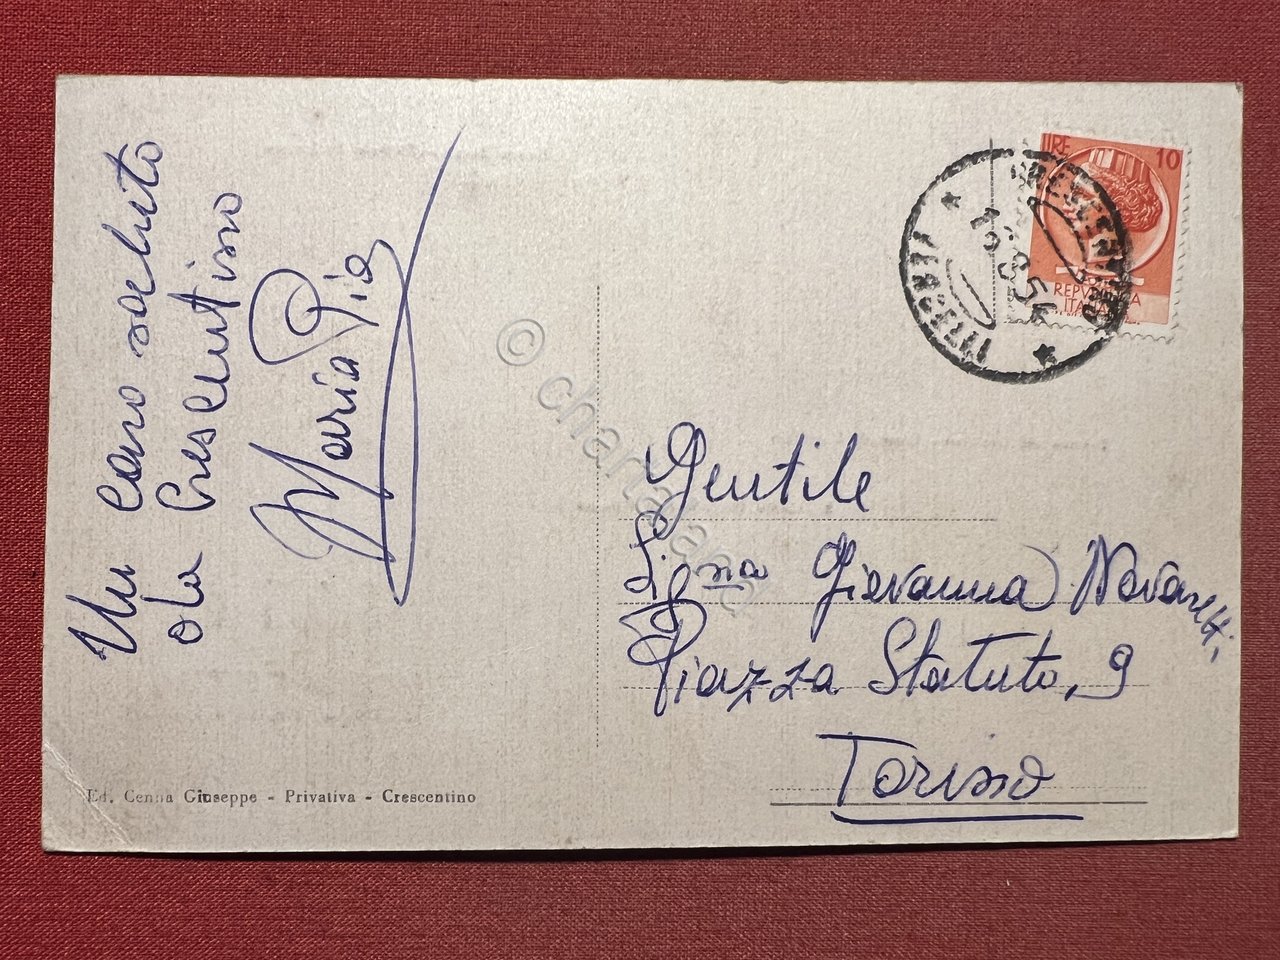 Un caro saluto
da Crescentino
Maria Pia
LIRE 10
REPVBBLICA
ITALIANA
CRESCENTINO
VERCELLI
Gentile
Sig.na Giovanna Novaretti,
Piazza Statuto, 9
Torino
Ed. Cenna Giuseppe - Privativa - Crescentino